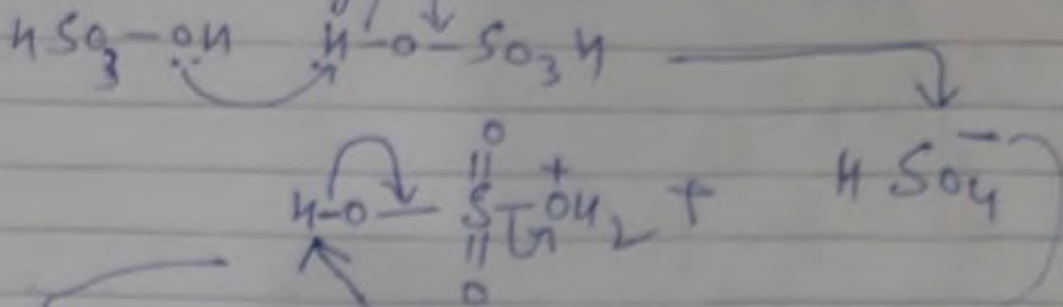 HSO₃-ÖH H-O-SO₃H
O
||
H-O-S-OH₂⁺ + HSO₄⁻
||
O